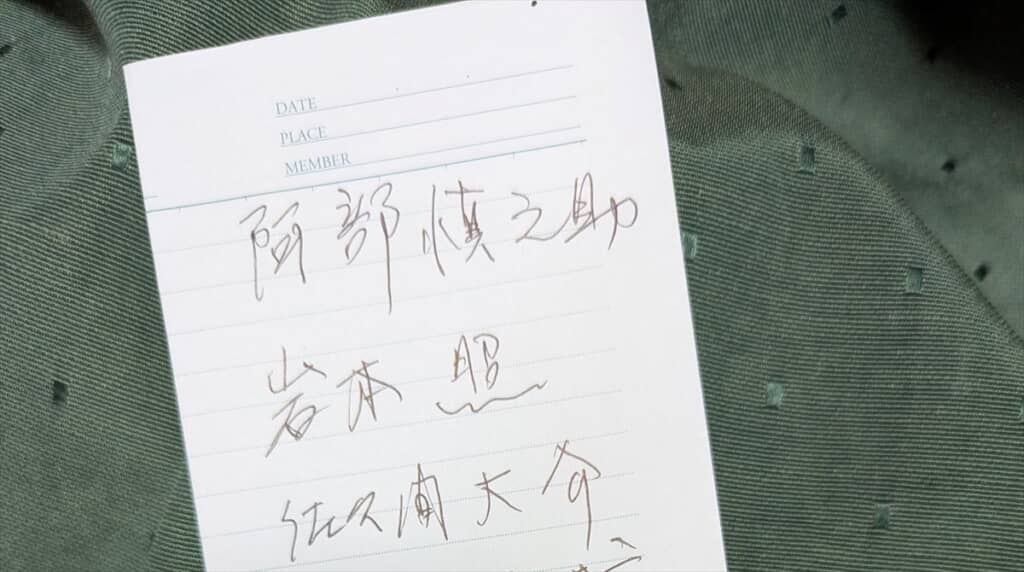 DATE
PLACE
MEMBER
阿部慎之助
岩本 照
佐久間大介